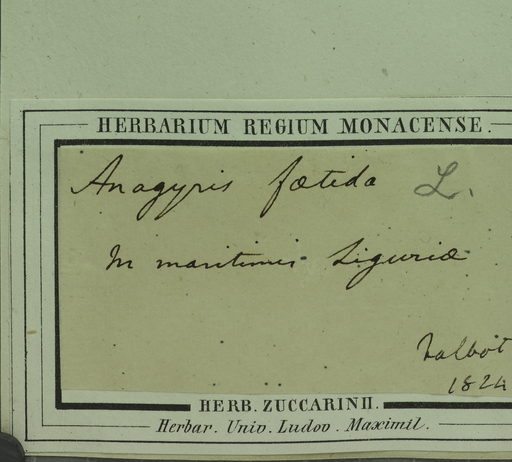 HERBARIUM REGIUM MONACENSE.
Anagyris fœtida L.
In maritimis Liguriæ
Talbot
1824
HERB. ZUCCARINII.
Herbar. Univ. Ludov. Maximil.